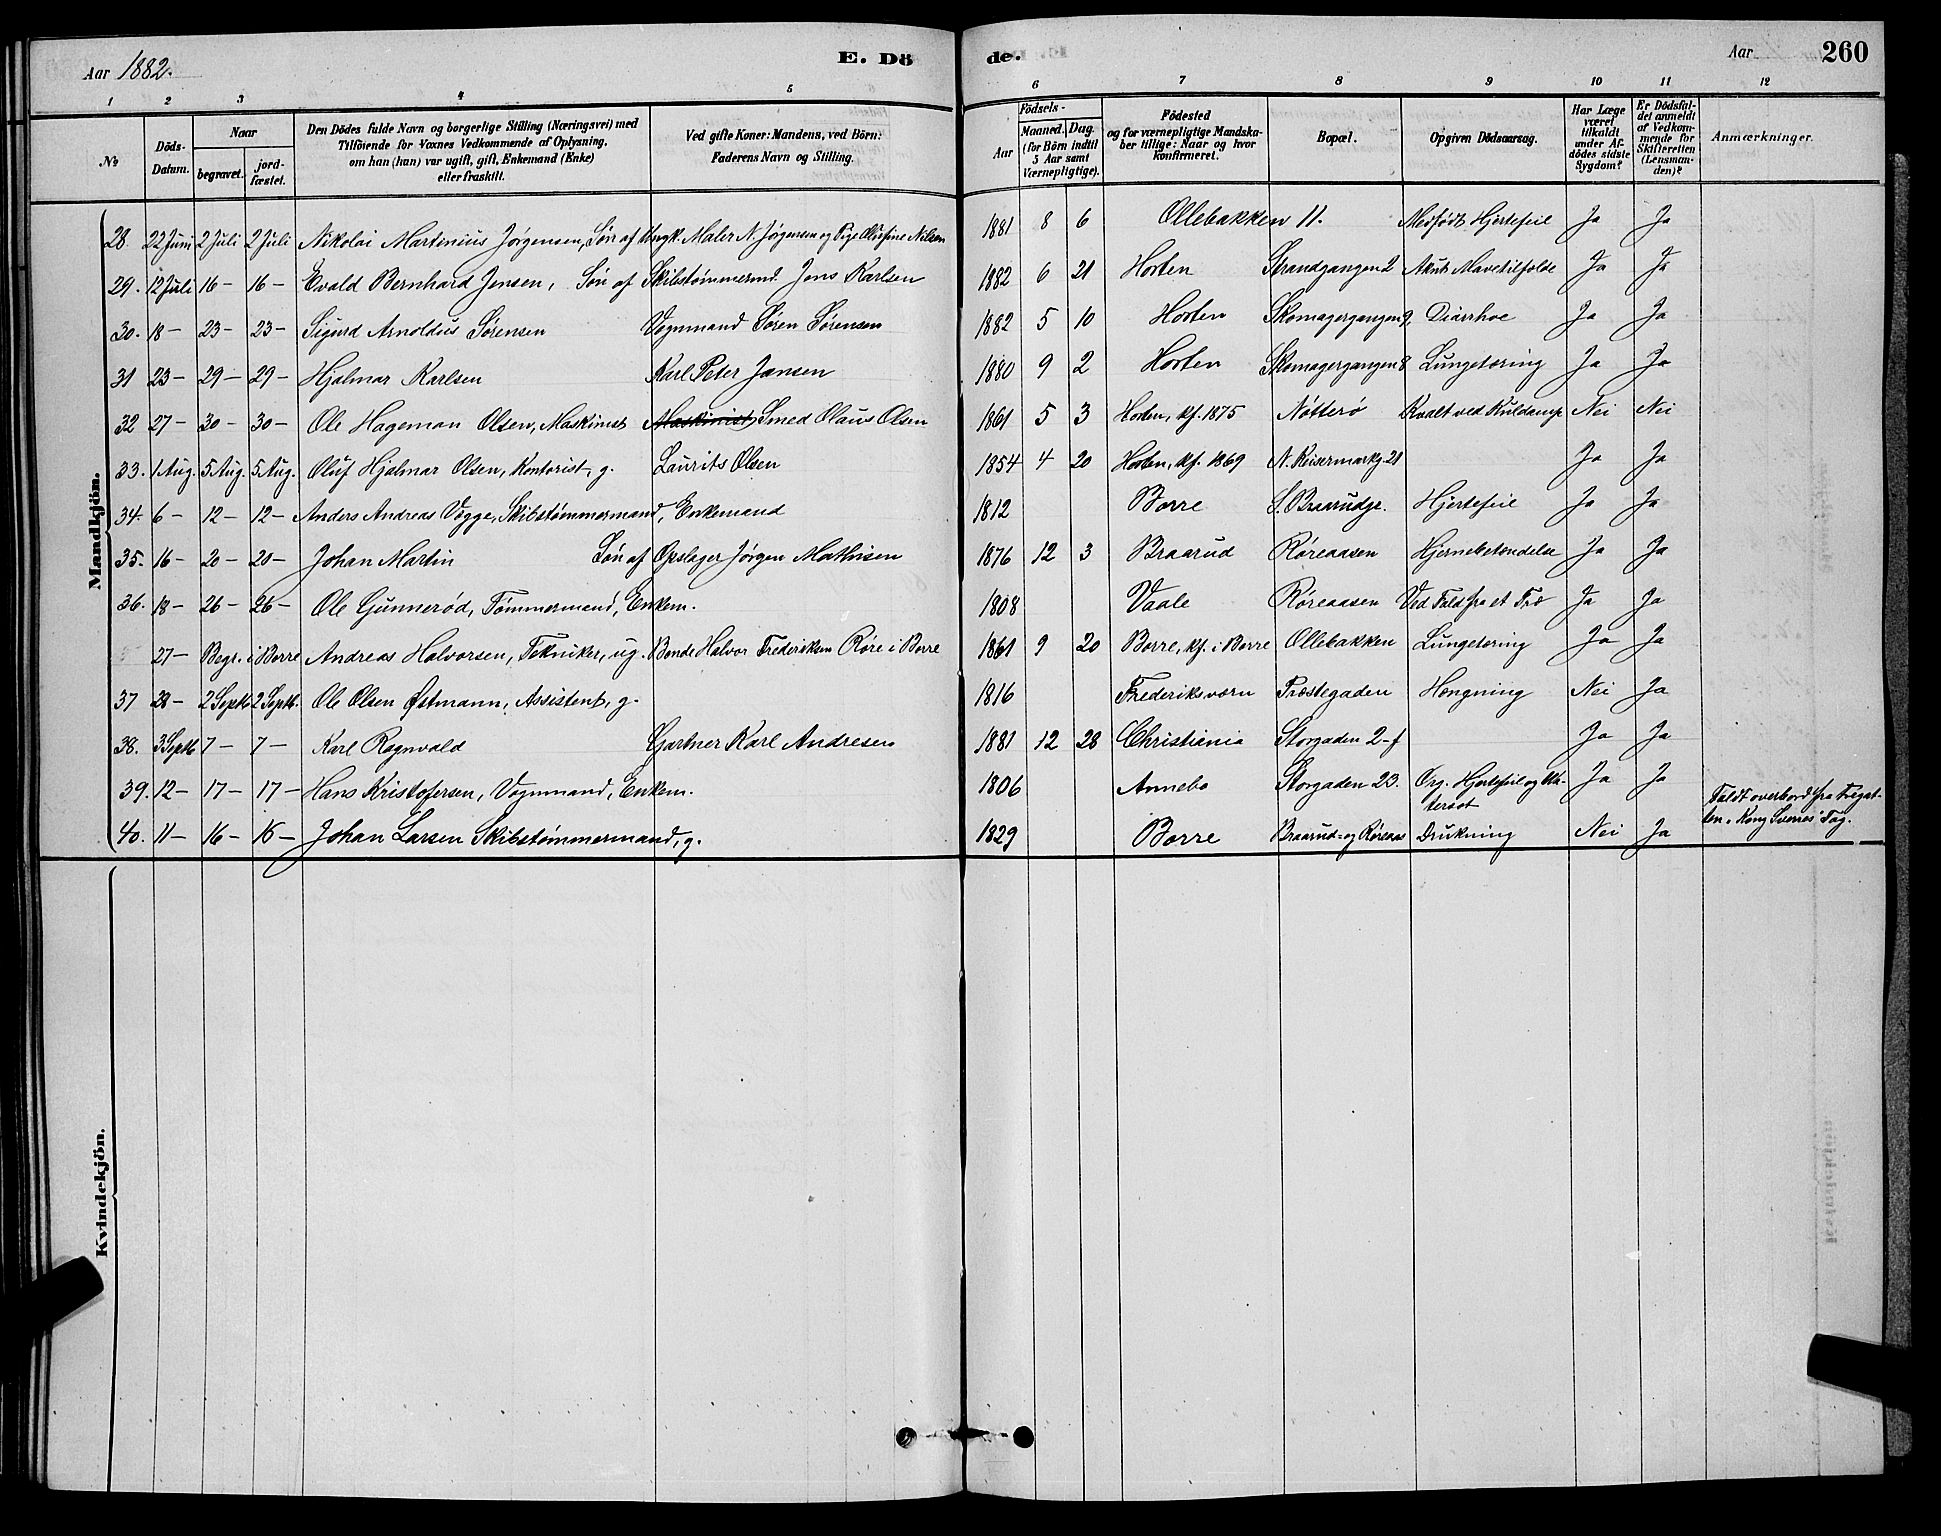 Aar 1882. E. Dö
de. Aar 260
1 2 3 4 5
6 7 8 9 10 11 12
No Döds-Datum. Naar begravet. jord-fæstet. Den Dödes fulde Navn og borgerlige Stilling (Næringsvei) med Tilföiende for Voxnes Vedkommende af Oplysning, om han (hun) var ugift, gift, Enkemand (Enke) eller fraskilt. Ved gifte Koner: Mandens, ved Börn: Faderens Navn og Stilling.
Födsels- Aar Maaned. Dag. (for Börn indtil 5 Aar samt Værnepligtige). Födested og for værnepligtige Mandskaber tillige: Naar og hvor konfirmeret. Bopæl. Opgiven Dödsaarsag. Har Læge været tilkaldt under Afdödes sidste Sygdom? Er Dödsfaldet anmeldt af Vedkommende for Skifteretten (Lensmanden)? Anmærkninger.
Mandkjön.
28. 22 Juni 2 Juli 2 Juli Nikolai Martinius Jörgensen, Sön af Ungk. Maler N. Jörgensen og Pige Olufine Nilsen 1881 8 6 Ollebakken 11. Medfödt Hjertefeil Ja Ja
29. 12 Juli 16 – 16 – Evald Bernhard Jensen, Sön af Skibstømmermd. Jens Karlsen 1882 6 21 Horten Strandgangen 2 Akut Mavetilfælde Ja Ja
30. 18 – 23 – 23 – Sigurd Arnoldus Sørensen Vognmand Søren Sørensen 1882 5 10 Horten Skomagergangen 9, Diarrhoe Ja Ja
31 23 – 29 – 29 – Hjalmar Karlsen Karl Peter Jansen 1880 9 2 Horten Skomagergangen 8 Lungetæring Ja Ja
32 27 – 30 – 30 – Ole Hageman Olsen, Maskinist Maskinist, Smed Olaus Olsen 1861 5 3 Horten, kf. 1875 Nøtterø Kvalt ved Kuldamp Nei Nei
33. 1 Aug. 5 Aug. 5 Aug. Oluf Hjalmar Olsen, Kontorist, g. Laurits Olsen 1854 4 20 Horten, kf. 1869 N. Keisermarkg. 21 Ja Ja
34. 6 – 12 – 12 – Anders Andreas Vogge, Skibstømmermand, Enkemand 1812 Borre S. Braarudgr. Hjertefeil Ja Ja
35. 16 – 20 – 20 – Johan Martin Sön af Opslager Jörgen Mathisen 1876 12 3 Braarud Røreaasen Hjernebetændelse Ja Ja
36. 18 – 26 – 26 – Ole Gunnerød, Tömmermand, Enkem. 1808 Vaale Røreaasen Ved Fald fra et Træ Ja Ja
27 – Begr. i Borre Andreas Halvorsen, Tekniker, ug. Bonde Halvor Frederiksen Røre i Borre 1861 9 20 Borre, kf. i Borre Ollebakken Lungetæring Ja Ja
37 28 – 2 Septb. 2 Septb. Ole Olsen Østmann, Assistent, g. 1816 Frederiksværn Præstegaden Hængning Nei Ja
38. 3 Septb 7 – 7 – Karl Ragnvald Gartner Karl Andresen 1881 12 28 Christiania Storgaden 2 -f Ja Ja
39. 12 – 17 – 17 – Hans Kristofersen, Vognmand, Enkem. 1806 Annebo Storgaden 23. Org. Hjertefeil og Vatersot Ja Ja
40. 11 – 16 – 16 – Johan Larsen Skibstømmermand, g. 1829 Borre Braarud- og Røreaas Drukning Nei Ja Faldt overbord fra Fregatten "Kong Sverres" Tag.
Kvindekjön.